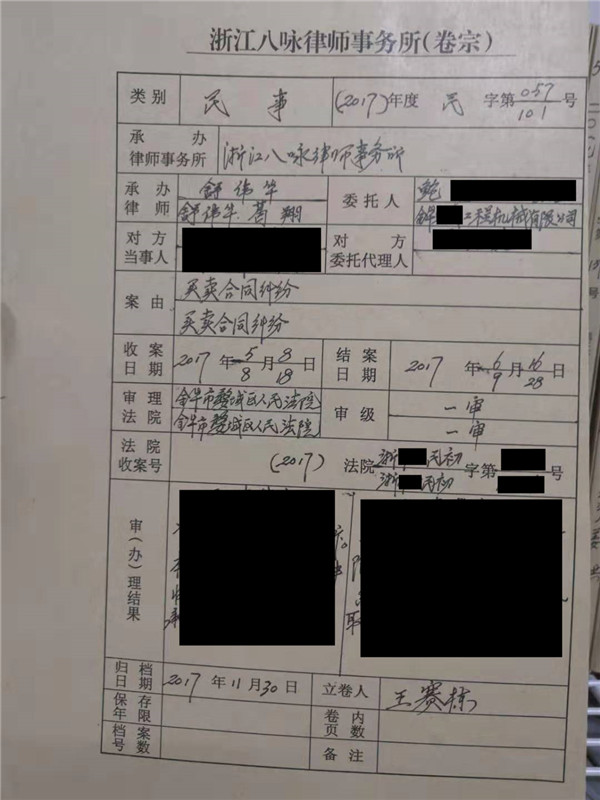 浙江八咏律师事务所(卷宗)
类别 民事 (2017)年度 民 字第 057 101 号
承办律师事务所 浙江八咏律师事务所
承办律师 舒伟华 委托人 鲍
舒伟华 葛翔 金华 工程机械有限公司
对方当事人 对方委托代理人
案由 买卖合同纠纷
买卖合同纠纷
收案日期 2017年 5 8 月 8 18 日 结案日期 2017年 6 9 月 16 28 日
审理法院 金华市婺城区人民法院 审级 一审
金华市婺城区人民法院 一审
法院收案号 (2017) 法院 浙 民初 字第 号
浙 民初
审(办)理结果
归档日期 2017年11月30日 立卷人 王赛栋
保存年限 卷内页数
档案号数 备注